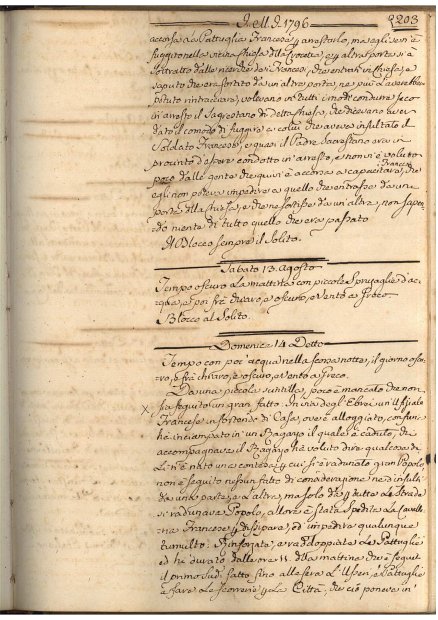 Dell' A. 1796 203
accorsa la Pattuglia Francese p arrestarlo, ma egli si è
fuggito nella vicina Chiesa della Crocetta, e p altra porta si è
sottratto dalle ricerche de i Francesi, che entrati in Chiesa, e
saputo che era sortito da un'altra porta, ne più l'averebbero
potuto rintracciare, volevano in tutti i modi condurre seco
in arresto il Sagrestano di detta Chiesa, che dicevano aver
dato il comodo di fuggire a colui che aveva insultato il
Soldato Francese, e quasi il Padre Sagrestano era in
procinto d'essere condotto in arresto, e non vi è voluto
poco dalle gente che quivi è accorsa a capacitare i Francesi, che
egli non poteva impedire a quello che entrasse da una
porta della Chiesa, e che sortisse da un'altra, non sapen
do niente di tutto quello che era passato
Il Blocco sempre il Solito.
Sabato 13. Agosto
Tempo oscuro la mattina con piccole spruzaglie d'ac
qua, e poi frà chiaro, e oscuro, e vento a Greco
Blocco al Solito.
Domenica 14 Detto
Tempo con poc' acqua nella scorsa notte, il giorno oscu
ro, e frà chiaro, e oscuro, e vento a Greco.
Da una piccola scintilla, poco è mancato che non
sia seguito un gran fatto. In via degl'Ebrei un Uffiziale
Francese sortendo di Casa, ove è alloggiato, con funi
hà inciampato in un Ragazzo il quale è caduto, chi
accompagnava il Ragazzo hà voluto dire qualcosa, di
lì n'è nato una contesa, p cui si è radunato gran Popolo,
non è seguito nessun fatto di considerazione nè d'insulti
da una parte, e l'altra, ma solo che p tutte le strade
si radunava Popolo, allora è stata spedita la Cavalle
ria Francese p dissipare, ed impedire qualunque
tumulto. Rinforzate, e raddoppiate le Pattuglie
ed hà durato dalle ore 11. della mattina che è seguito
il primo sud. fatto sino alla sera l'Uffizi, e Pattuglie
a fare le scorrerie p la Città, che ciò poneva in